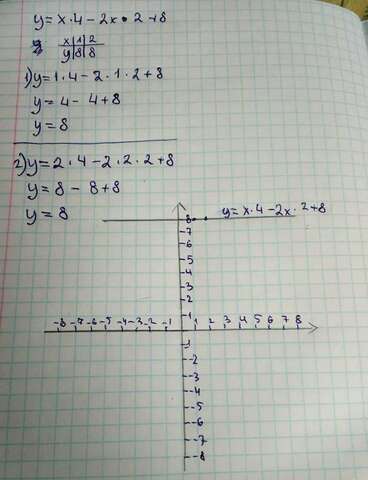 y=x·4-2x·2+8
x|1|2
y|8|8
1)y=1·4-2·1·2+8
y=4-4+8
y=8
2)y=2·4-2·2·2+8
y=8-8+8
y=8
y=x·4-2x·2+8
8
7
6
5
4
3
2
1
-8 -7 -6 -5 -4 -3 -2 -1 1 2 3 4 5 6 7 8
-1
-2
-3
-4
-5
-6
-7
-8